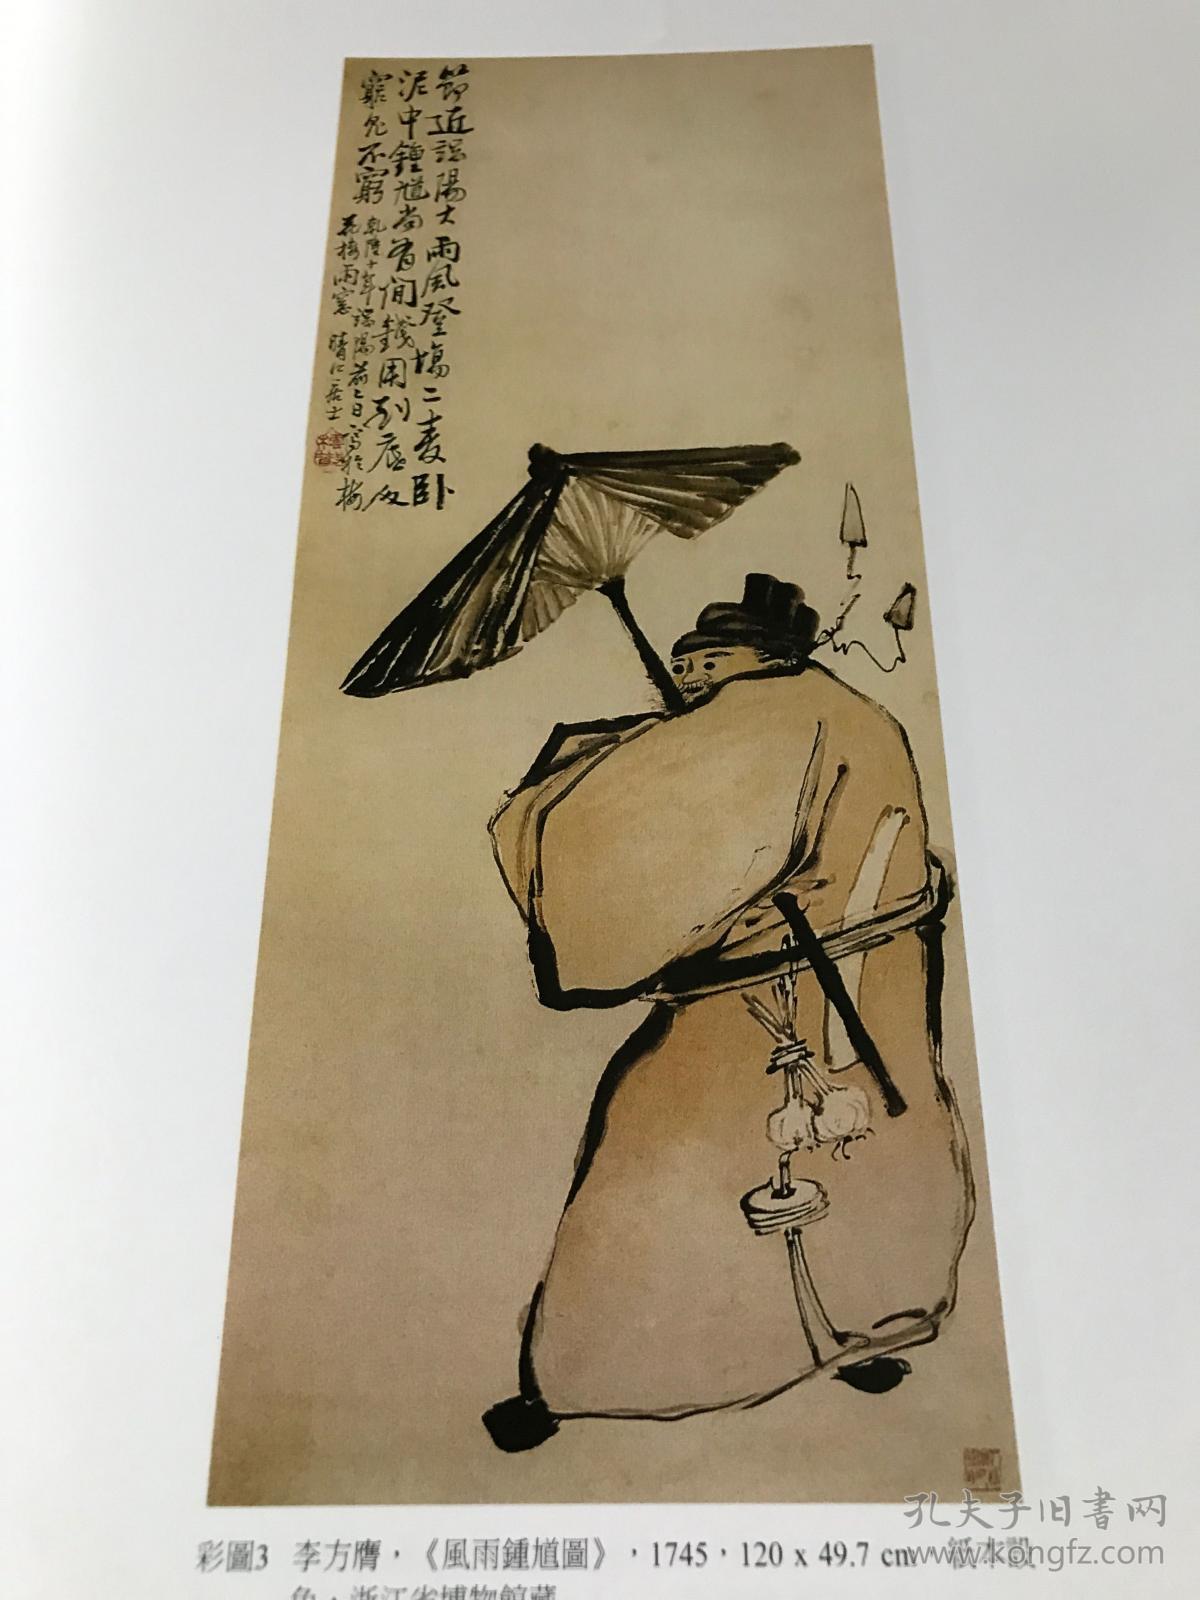 節近端陽大雨風登場二麥臥
泥中鍾馗尚有閒錢用到底人
窮鬼不窮
乾隆十年端陽前二日寫於梅
花樓雨窗 晴江居士
孔夫子旧書网
www.kongfz.com
彩圖3 李方膺，《風雨鍾馗圖》，1745，120 x 49.7 cm 紙本設
色，浙江省博物館藏